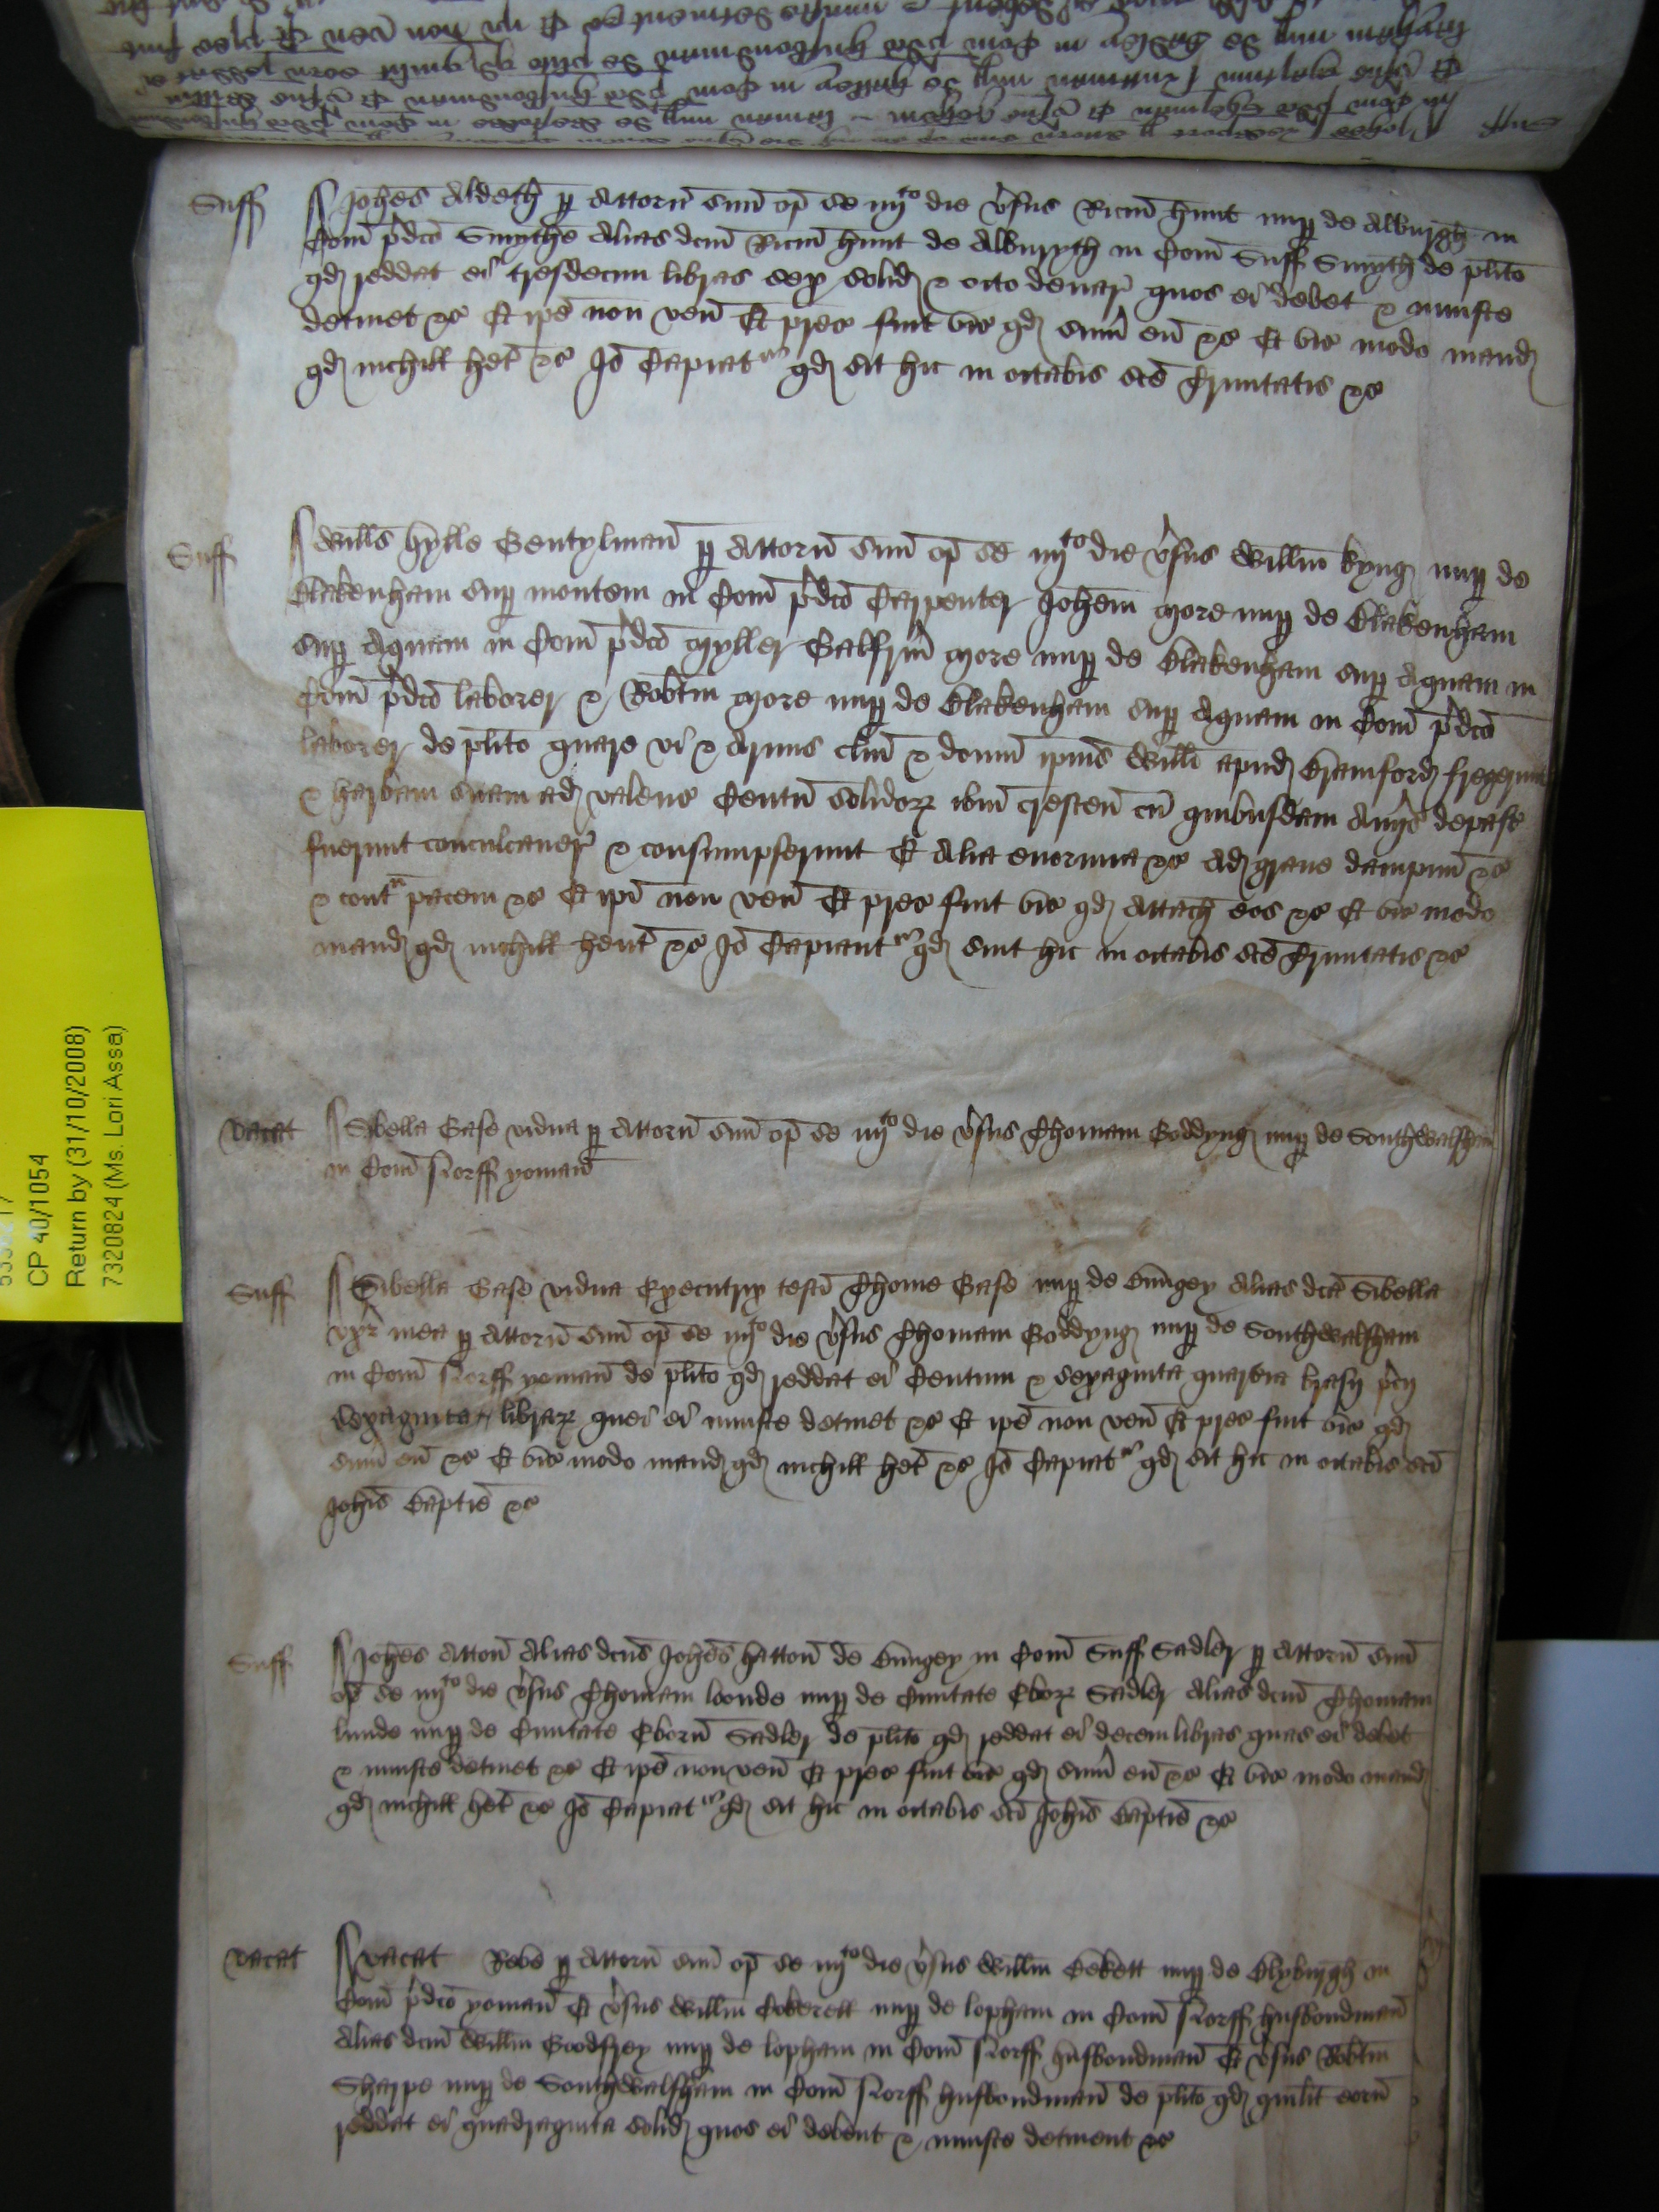 Suff Johes Aldeth p Attorn suu op se iiijto die vsus Ricm hunt nup de Alburgh in
Com pdco Smythe alias dcm Ricm hunt de Alburgh in Com Suff Smyth de plito
qd reddat ei tresdecim libras sex solid & octo denar quos ei debet & iniuste
detinet &c Et ipe non ven Et prec fuit vic qd sum eu &c Et vic modo mand
qd nichill het &c Io Capiatr qd sit hic in octabis sce Trinitatis &c
Suff Wills hylle Gentylman p Attorn suu op se iiijto die vsus Willm kyng nup de
Blakenham sup montem in Com pdco Carpenter Johem More nup de Blakenham
sup Aquam in Com pdco Myller Galfrm More nup de Blakenham sup Aquam in
Com pdco laborer & Robtm More nup de Blakenham sup Aquam in Com pdco
laborer de plito quare vi & armis clm & domu ipius Willi apud Bramford fregerunt
& harbam suam ad valenc Centu solidor ibm crescen cu quibusdam aviis depast
fuerunt conculcaver & consumpserunt Et alia enormia &c ad grave dampnu &c
& contra pacem &c Et ipi non ven Et prec fuit vic qd attach eos &c Et vic modo
mand qd nichill hent &c Io Capiantr qd sint hic in octabis sce Trinitatis &c
vacat Sibella Gase vidua p Attorn suu op se iiijto die vsus Thomam Goddyng nup de Southwalsham
in Com Norff yoman
Suff Sibella Gase vidua Executrix testi Thome Gase nup de Bungey alias dca Sibella
uxr mea p Attorn suu op se iiijto die vsus Thomam Goddyng nup de Southwalsham
in Com Norff yoman de plito qd reddat ei Centum & sexaginta quarteria brasij pcij
sexaginta librar que ei iniuste detinet &c Et ipe non ven Et prec fuit vic qd
sum eu &c Et vic modo mand qd nichill het &c Io Capiatr qd sit hic in octabis sci
Johis Baptis &c
Suff Johes Atton alias dcus Johes hatton de Bungey in Com Suff Sadler p Attorn suu
op se iiijto die vsus Thomam londe nup de Civitate Ebor Sadler alias dcm Thomam
lunde nup de Civitate Eborn Sadler de plito qd reddat ei decem libras quas ei debet
& iniuste detinet &c Et ipe non ven Et prec fuit vic qd sum eu &c Et vic modo mand
qd nichill het &c Io Capiatr qd sit hic in octabis sci Johis Baptis &c
vacat vacat p Attorn suu op se iiijto die vsus Willm Bekett nup de Blyburgh in
Com pdco yoman Et vsus Willm Cokerell nup de lopham in Com Norff husbondman
alias dcm Willm Goodfrey nup de lopham in Com Norff husbondman Et vsus Robtm
Sharpe nup de Southwalsham in Com Norff husbondman de plito qd quilt eoru
reddat ei quadraginta solid quos ei debent & iniuste detinent &c
CP 40/1054
Return by (31/10/2008)
7320824 (Ms. Lori Assa)